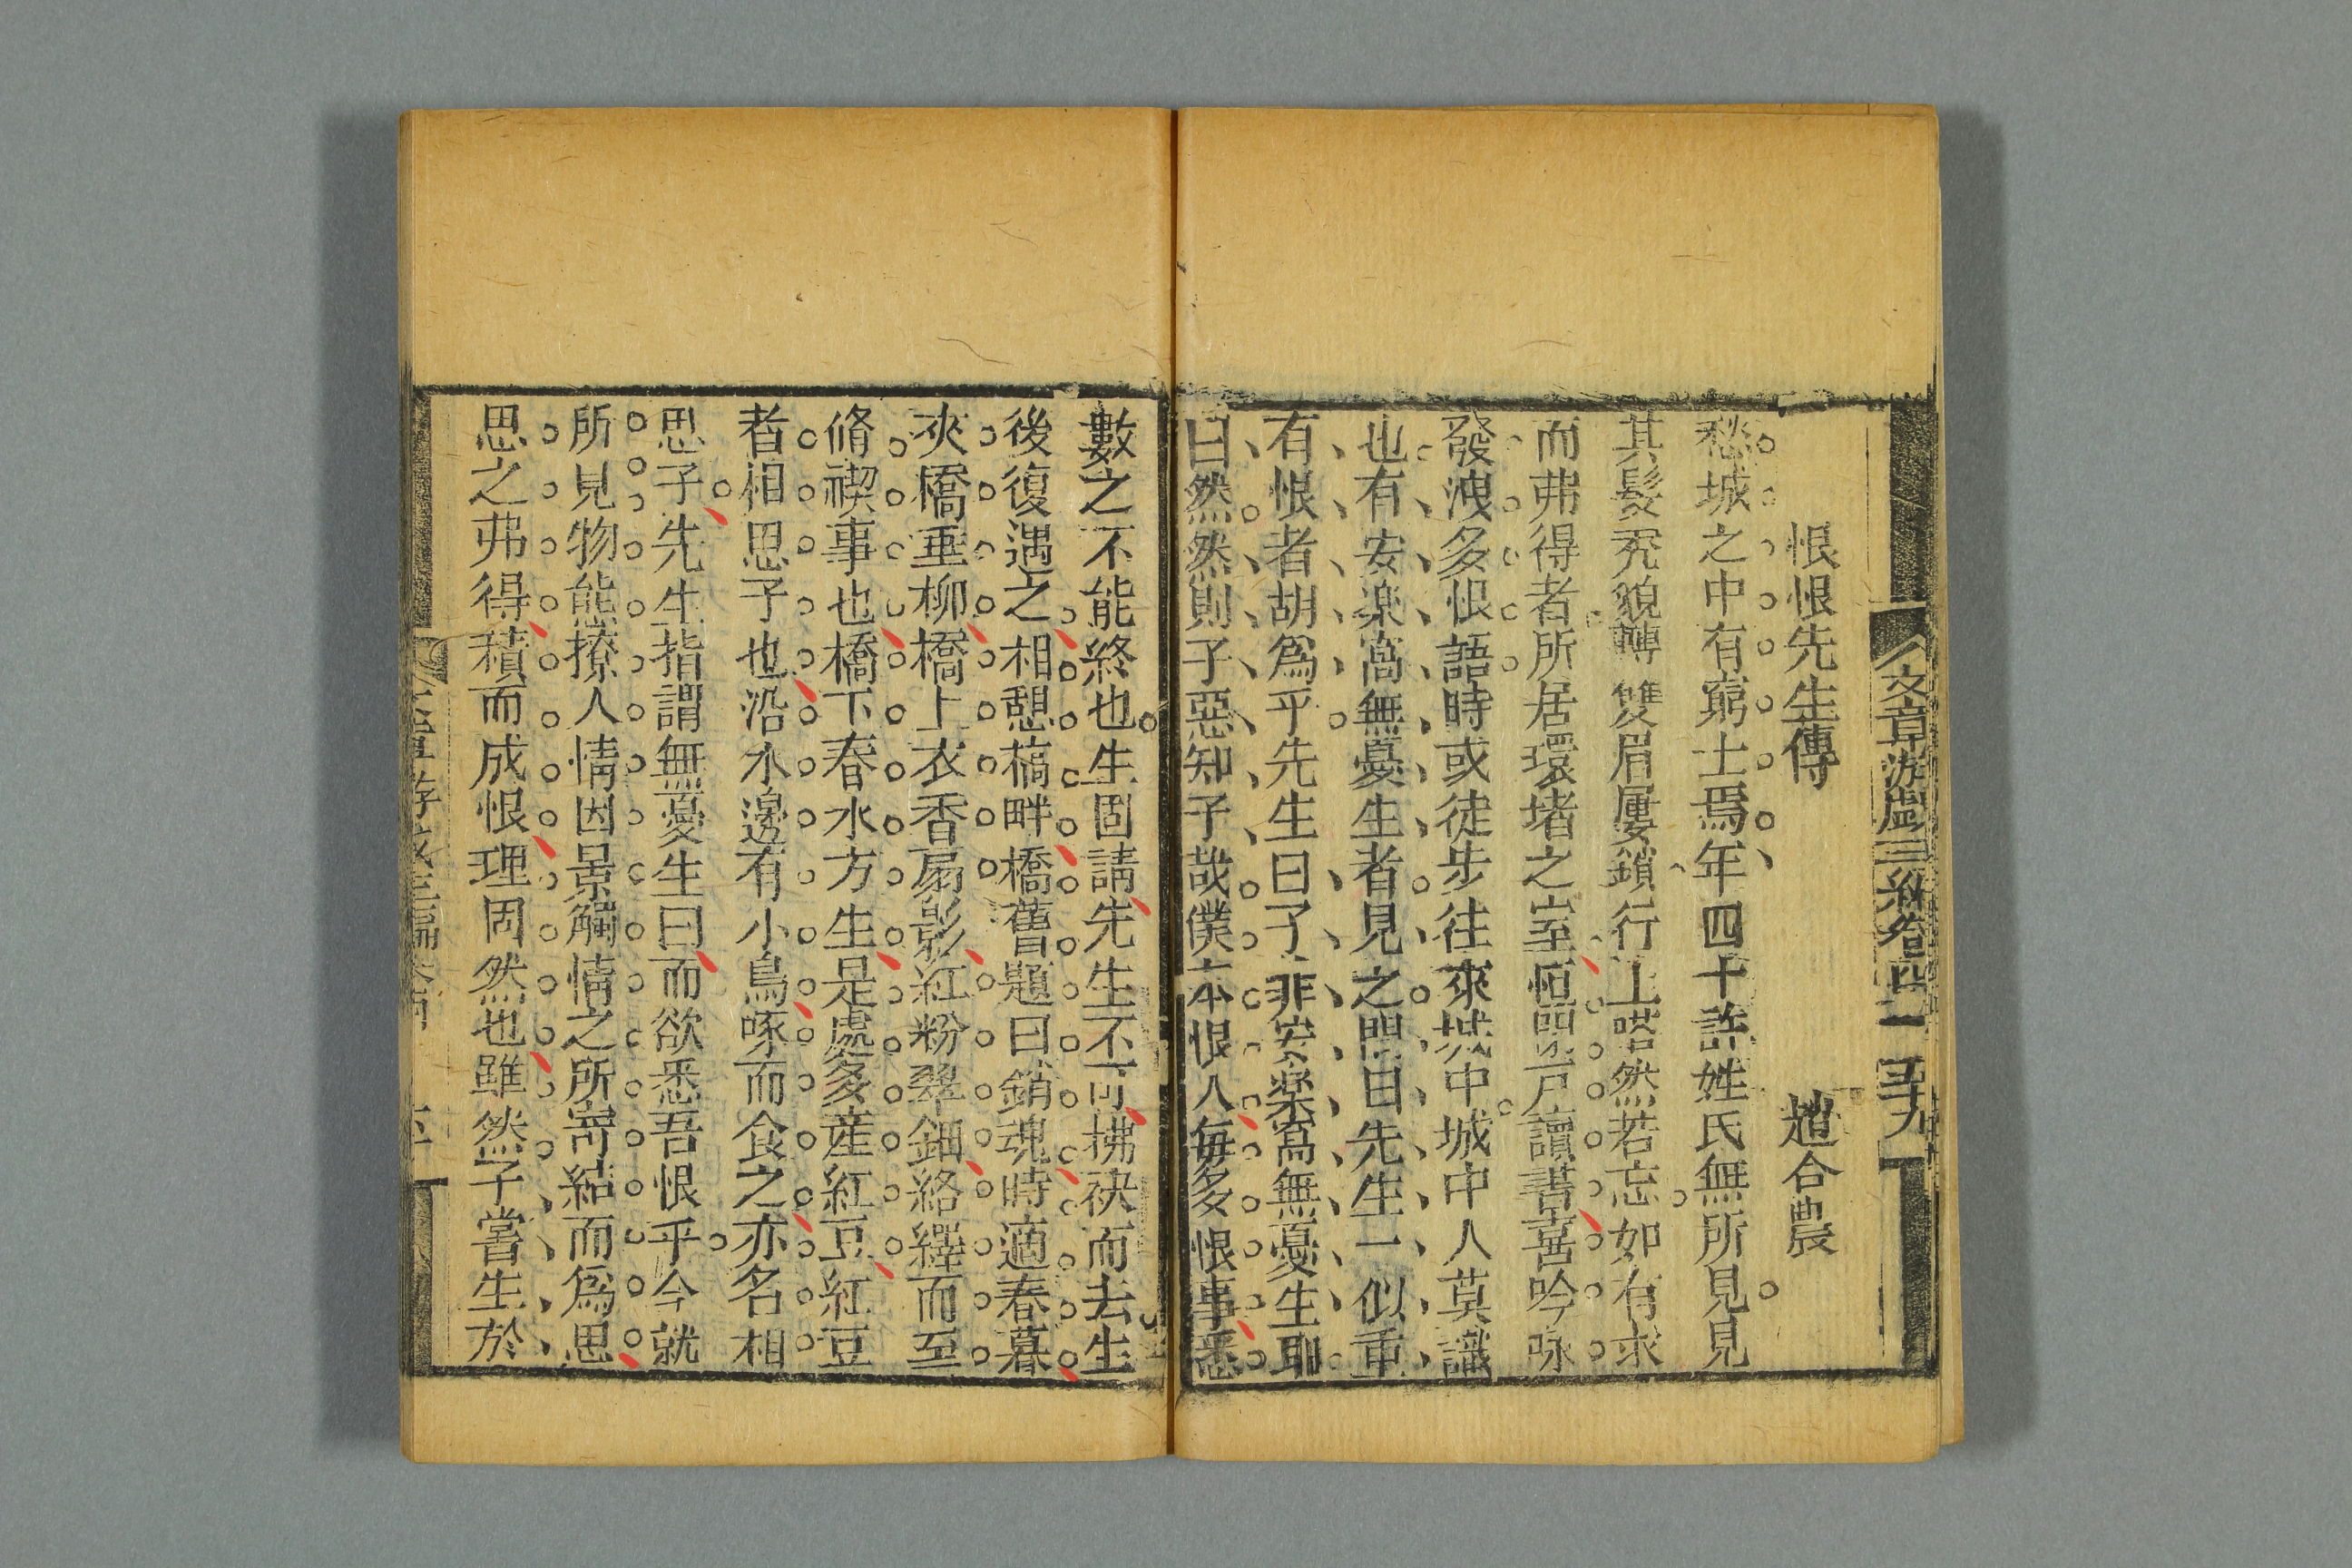 文章游戲三編卷四 五十九
恨恨先生傳 趙合農
愁城之中有窮士焉年四十許姓氏無所見見
其髮禿貌轉雙眉屢鎖行止嗒然若忘如有求
而弗得者所居環堵之室恒閉戶讀書喜吟咏
發洩多恨語時或徒步往來城中城中人莫識
也有安樂窩無憂生者見之問曰先生一似重
有恨者胡爲乎先生曰子非安樂窩無憂生耶
曰然然則子惡知予哉僕本恨人每多恨事悉
數之不能終也生固請先生不可拂袂而去生
後復遇之相憩橋畔橋舊題曰銷魂時適春暮
夾橋垂柳橋上衣香扇影紅粉翠鈿絡繹而至
脩禊事也橋下春水方生是處多産紅豆紅豆
者相思子也沿水邊有小鳥啄而食之亦名相
思子先生指謂無憂生曰而欲悉吾恨乎今就
所見物能撩人情因景觸情之所寄結而爲思
思之弗得積而成恨理固然也雖然子嘗生於
文章游戲三編卷四